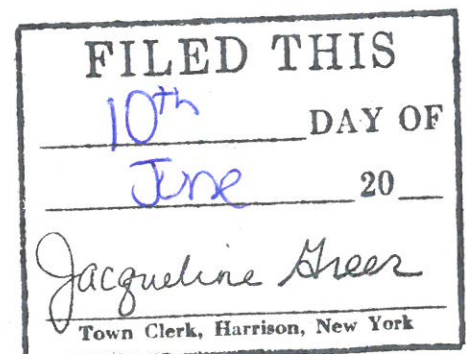 FILED THIS
10th DAY OF
June 20
Jacqueline Greer
Town Clerk, Harrison, New York